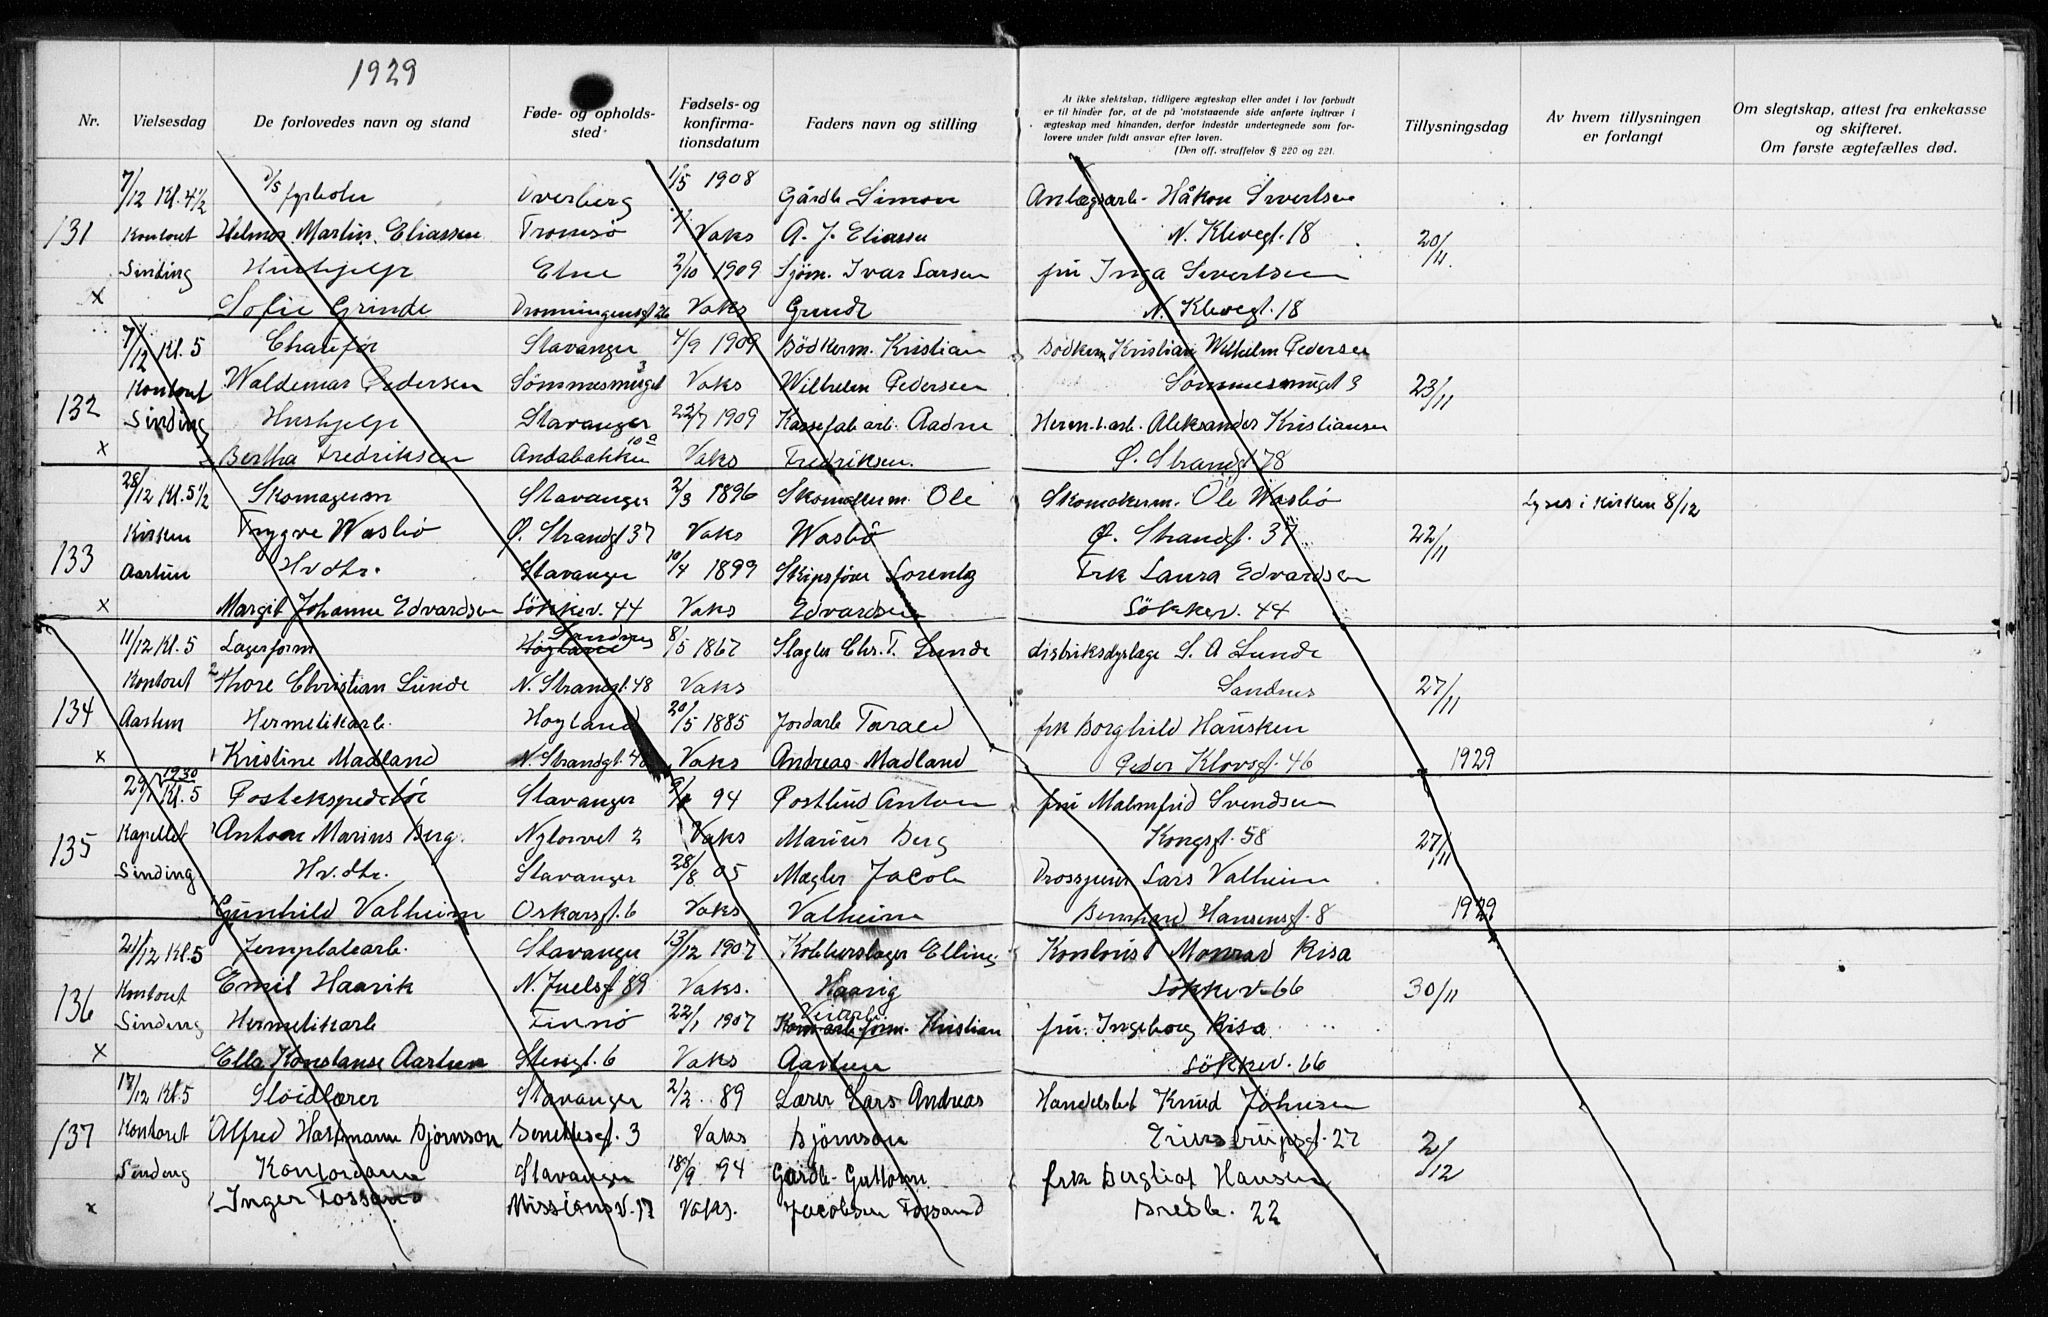 1929
Nr.
Vielsesdag
De forlovedes navn og stand
Føde- og opholds-
sted
Fødsels- og
konfirma-
tionsdatum
Faders navn og stilling
At ikke slektskap, tidligere ægteskap eller andet i lov forbudt
er til hinder for, at de på motstaaende side anførte indtrær i
ægteskap med hinanden, derfor indestår undertegnede som for-
lovere under fuldt ansvar efter loven.
(Den off. straffelov § 220 og 221.
Tillysningsdag
Av hvem tillysningen
er forlangt
Om slegtskap, attest fra enkekasse
og skifteret.
Om første ægtefælles død.
7/12 Kl. 4½ D/S fyrböter Overberg 1/5 1908 Gårdb Simon Anlægsarb. Håkon Sivertsen
131 Kontoret Helmer Martin Eliassen Tromsö Vaks A. J. Eliassen N. Klevegt. 18 20/11
Sinding Hushjelp Etne 2/10 1909 Sjöm. Ivar Larsen fru Inga Sivertsen
x Sofie Grinde Dronningensgt 26 Vaks Grinde N. Klevegt. 18
7/12 Kl. 5 Chauför Stavanger 4/9 1909 Bödkerm. Kristian Bödkerm Kristian Wilhelm Pedersen
132 Kontoret Waldemar Pedersen Sömmesmuget 3 Vaks Wilhelm Pedersen Sömmesmuget 3 23/11
Sinding Hushjelp Stavanger 22/7 1909 Kassefab arb. Aadne Herm. arb. Aleksander Kristiansen
x Bertha Fredriksen Andabakken 10 a Vaks Fredriksen. Ø. Strandgt 78
28/12 Kl. 5½ Skomagerm Stavanger 2/3 1896 Skomakerm. Ole Skomakerm. Ole Wasbö Lyses i Kirken 8/12
133 Kirken Trygve Wasbö Ø. Strandgt 37 Vaks Wasbö Ø. Strandgt. 37 22/11
Aarthun Hv. dtr. Stavanger 10/4 1899 Skipsförer Lorentz Frk Laura Edvardsen
x Margit Johanne Edvardsen Lökkev. 44 Vaks Edvardsen Lökkev. 44
11/12 Kl. 5 Lagerform Høyland Sandnes 8/5 1867 Slagter Chr. T. Lunde distriksdyrlæge S. A Lunde
134 Kontoret Thore Christian Lunde N. Strandgt. 48 Vaks Sandnes 27/11
Aarthun Hermetikarb. Hoyland 20/5 1885 Jordarb Tarald frk Borghild Hausken
x Kristine Madland N. Strandgt. 48 Vaks Andreas Madland Peder Klowsgt. 46 1929
29/1 1930 Kl. 5 Postekspeditör Stavanger 94 Postbud Anton fru Malmfrid Svendsen
135 Kapellet Anton Marius Berg. Nytorvet 2 Vaks Marius Berg Kongsgt. 58 27/11
Sinding Hv. dtr. Stavanger 28/8 05 Mægler Jacob Lars Valheim
Gunhild Valheim Oskarsgt. 6 Vaks Valheim Bernhard Hansensgt. 8 1929
21/12 Kl. 5 Jernplatearb. Stavanger 13/12 1907 Kobberslager Elling Kontorist Monrad Risa
136 Kontoret Emil Haavik N. Juelsgt 89 Vaks. Haavig Lökkev. 66 30/11
Sinding Hermetikarb Finnö 22/1 1907 Kristian fru. Ingeborg Risa
x Ella Konstanse Aarthun Stengt. 6 Vaks Aarthun Lökkev. 66
17/12 Kl. 5 Slöidlærer Stavanger 2/2 89 Lærer Lars Andreas Handelsbet Knud Johnsen
137 Kontoret Alfred Hartmann Bjørnson Benettersgt. 3 Vaks Bjørnson Erichstrupsgt. 27 2/12
Sinding Kontordame Stavanger 18/9 94 Gårdb. Guttorm frk Bergliot Hansen
x Inger Fossand Missionsv. 17 Vaks. Jacobsen Fossand Bredb. 22